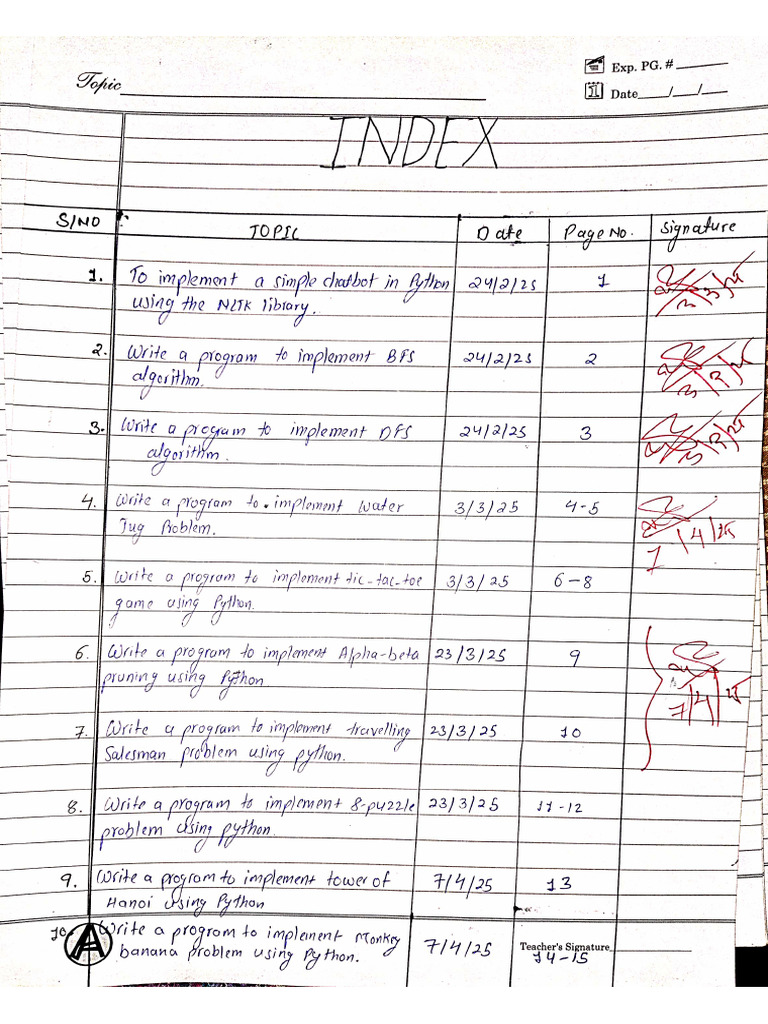 Exp. PG. #
Topic
Date / /
INDEX
S/NO TOPIC Date Page No. Signature
1. To implement a simple chatbot in Python 24/2/25 1
using the NLTK library. 3/3/25
2. Write a program to implement BFS 24/2/25 2
algorithm. 3/3/25
3. Write a program to implement DFS 24/2/25 3
algorithm. 3/3/25
4. Write a program to implement Water 3/3/25 4-5
Jug Problem. 7/4/25
5. Write a program to implement tic-tac-toe 3/3/25 6-8
game using Python.
6. Write a program to implement Alpha-beta 23/3/25 9
pruning using Python 7/4/25
7. Write a program to implement travelling 23/3/25 10
Salesman problem using python.
8. Write a program to implement 8-puzzle 23/3/25 11-12
problem using python.
9. Write a program to implement tower of 7/4/25 13
Hanoi using Python
10. Write a program to implement Monkey 7/4/25 Teacher's Signature
banana problem using Python. 14-15
A